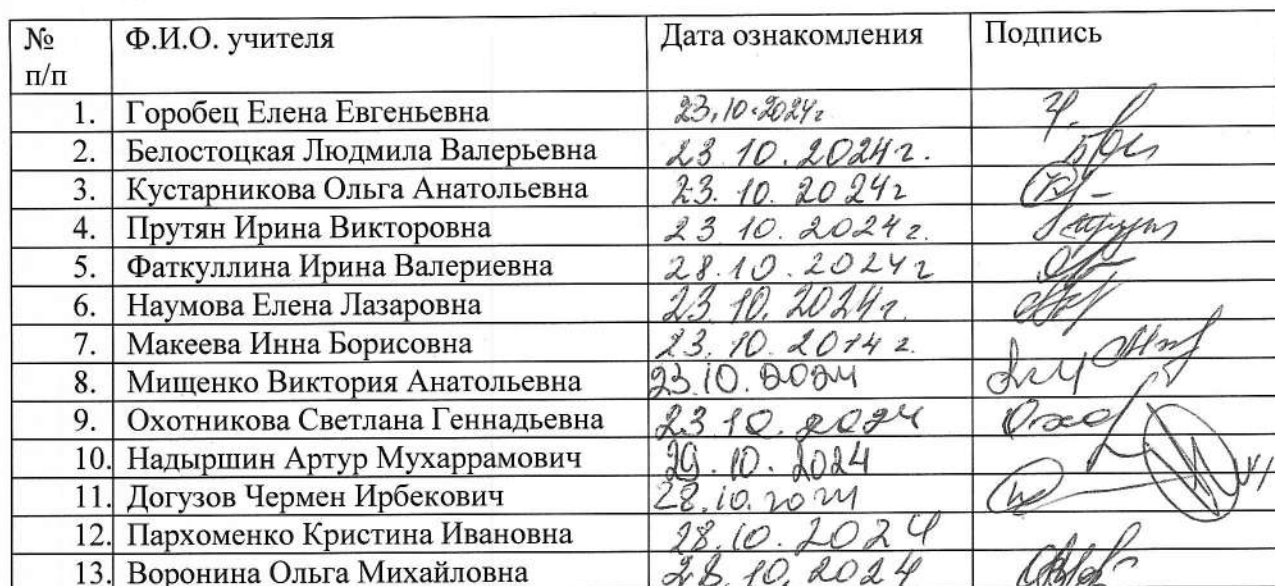 № п/п Ф.И.О. учителя Дата ознакомления Подпись
1. Горобец Елена Евгеньевна 23.10.2024г
2. Белостоцкая Людмила Валерьевна 23.10.2024г.
3. Кустарникова Ольга Анатольевна 23.10.2024г
4. Прутян Ирина Викторовна 23.10.2024г.
5. Фаткуллина Ирина Валериевна 28.10.2024г
6. Наумова Елена Лазаровна 23.10.2024г.
7. Макеева Инна Борисовна 23.10.2014г.
8. Мищенко Виктория Анатольевна 23.10.2024
9. Охотникова Светлана Геннадьевна 23.10.2024
10. Надыршин Артур Мухаррамович 29.10.2024
11. Догузов Чермен Ирбекович 28.10.2024
12. Пархоменко Кристина Ивановна 28.10.2024
13. Воронина Ольга Михайловна 28.10.2024